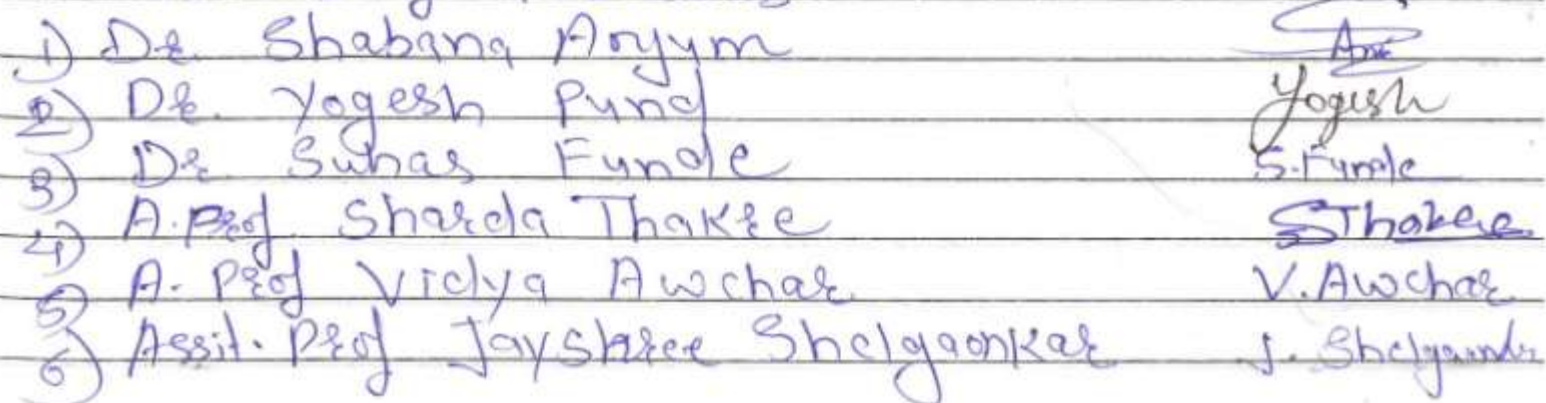 1) Dr. Shabana Anjum
2) Dr. Yogesh Pund Yogesh
3) Dr Suhas Funde S.Funde
4) A.Prof. Sharda Thakre SThakre
5) A. Prof Vidya Awchar V.Awchar
6) Assit. Prof Jayshree Shelgaonkar J. Shelgaonkar